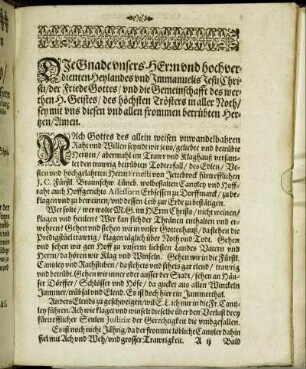 DIe Gnade vnsers HErrn vnd hochver-
dienten Heylandes vnd Immanuelis Jesu Chri-
sti / der Friede Gottes / vnd die Gemeinschafft des wer-
then H. Geistes / des höchsten Trösters in aller Noth /
sey mit vns diesen vnd allen frommen betrübten Her-
tzen / Amen.
NAch Gottes des allein weisen unwandelbahren
Raht vnd Willen seyndt wir jetzo / geliebte vnd betrübte
Hertzen / abermahl im Traur vnd Klaghauß versam-
let den traurig betrübten Todesfall / des Edlen / Ve-
sten vnd Hochgelahrten Herrn Ernesti von Jeterbrock fürtrefflichen
J. C. Fürstl. Braunschw. Lüneb. wolbestalten Cantzley vnd Hoff-
rahts auch Hoffgerichts Assessoren Erbsessen zu Dorffmarck / zube-
klagen vnd zu beweinen / vnd dessen Leib zur Erde zu bestätigen.
Wer solte / wer wolte M. G. im HErrn Christo / nicht weinen /
klagen vnd heulen? Wer kan sich der Thränen enthalten vnd er-
wehren? Gehen vnd stehen wir in unser Gotteshauß / da stehen die
Predigstüel traurig / klagen täglich über Noth vnd Todt. Gehen
vnd sehen wir gen Hoff zu vnserm liebsten Landes Vatern vnd
Herrn / da hören wir Klag vnd Winseln. Gehen wir in die Fürstl.
Cantzley vnd Rachstuben / da stehen vnd sitzen gar elend / traurig
vnd betrübt. Gehen wir immer oder ausser der Stadt / sehen an Häu-
ser Dörffer / Schlösser und Höfe / da gucken aus allen Winckeln
Jammer / trübsal vnd Elend. Es ist doch hier ein Jammerthal.
Anders Elends zu geschweigen / wil E. L. ich nur in die Fr. Cantz-
ley führen / Ach wie klaget vnd winselt dieselbe über den Verlust drey
fürtrefflicher Seulen Justitiæ der Gerechtigkeit die vmbgefallen.
Es ist noch nicht Jährig / da der fromme löbliche Cantzler dahin
fiel mit Ach vnd Weh / vnd grosser Traurigkeit.
A ij Bald